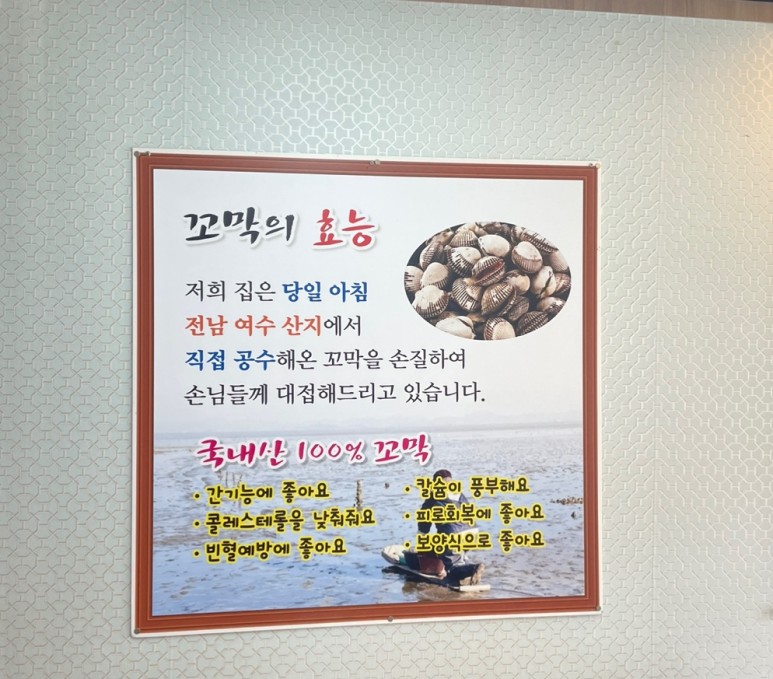 꼬막의 효능
저희 집은 당일 아침
전남 여수 산지에서
직접 공수해온 꼬막을 손질하여
손님들께 대접해드리고 있습니다.
국내산 100% 꼬막
· 간기능에 좋아요
· 콜레스테롤을 낮춰줘요
· 빈혈예방에 좋아요
· 칼슘이 풍부해요
· 피로회복에 좋아요
· 보양식으로 좋아요